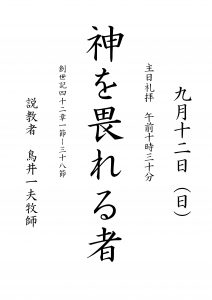 九月十二日（日）
主日礼拝　午前十時三十分
神を畏れる者
創世記四十二章一節－三十八節
説教者　鳥井一夫牧師